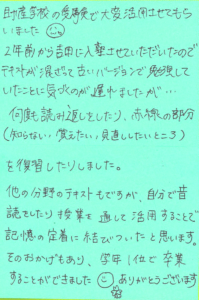 助産学校の受験で大変活用させてもら
いました
2年前から吉田に入塾させていただいたので
テキストが混ざって古いバージョンで勉強して
いたことに気づくのが遅れましたが…
何度も読み返しをしたり、赤線の部分
(知らない・覚えたい・見直ししたいところ)
を復習したりしました。
他の分野のテキストもですが、自分で音
読をしたり授業を通して活用することで
記憶の定着に結びついたと思います。
そのおかげもあり、学年1位で卒業
することができました ありがとうございます